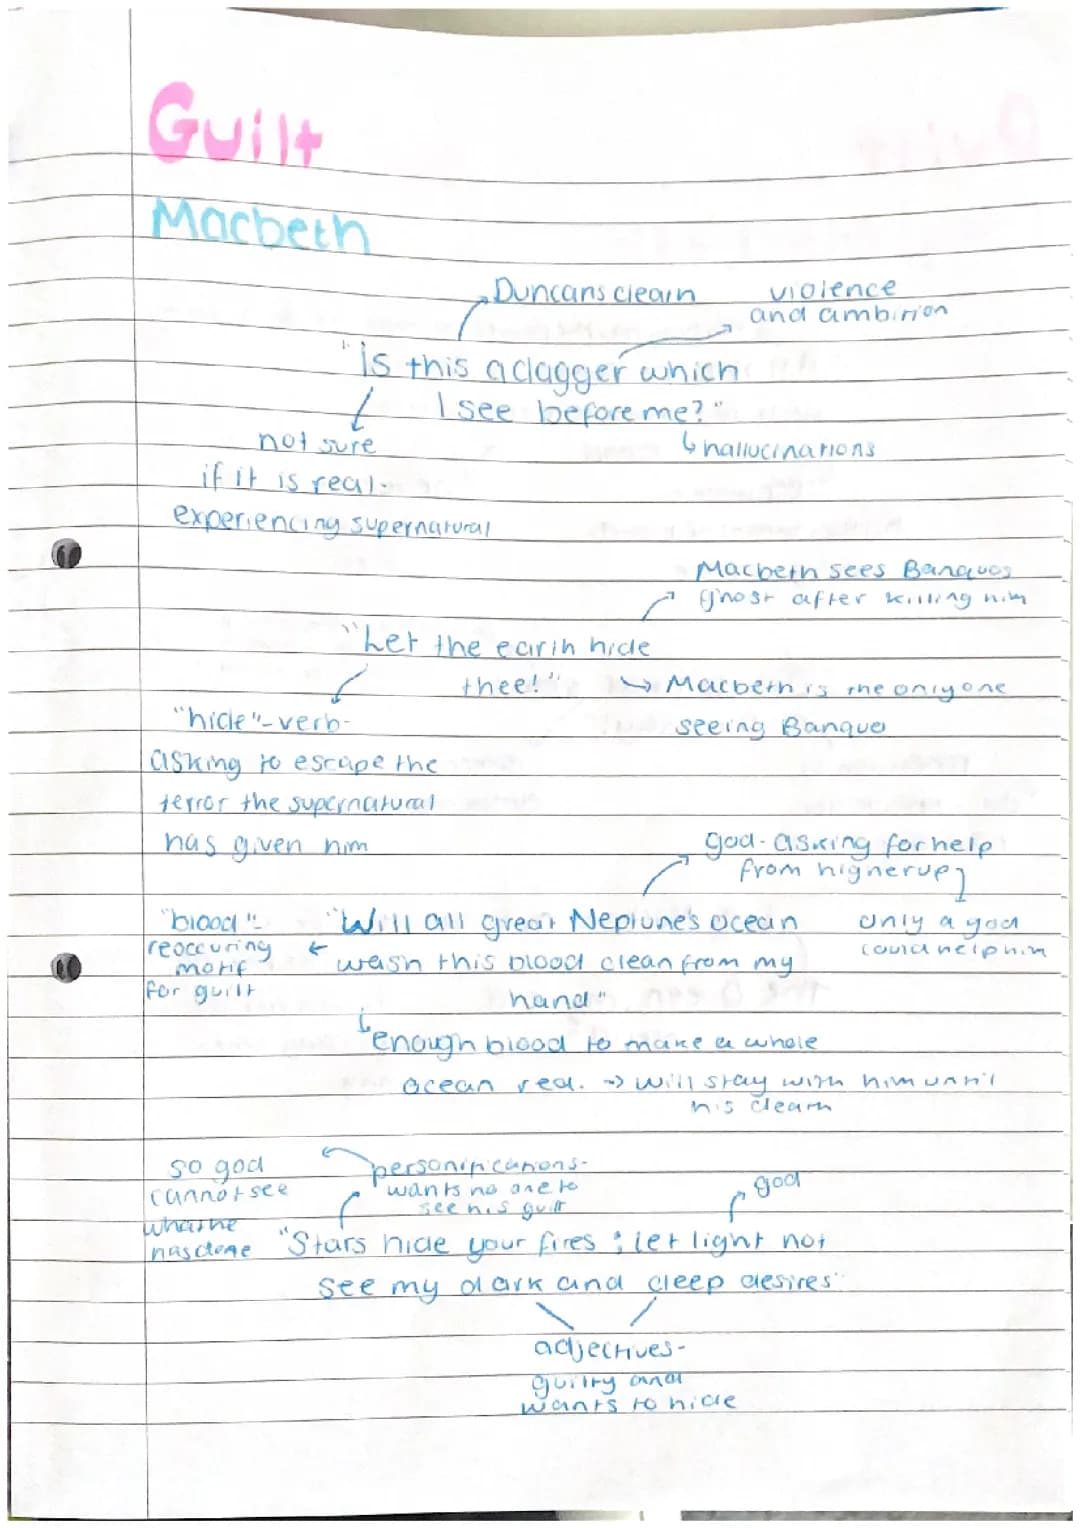 Guilt
Macbeth
Duncans death
violence
and ambition
"Is this a dagger which
I see before me?"
not sure
if it is real-
experiencing supernatural
↳ hallucinations
Macbeth sees Banquos
ghost after killing him
"Let the earth hide
thee!"
→ Macbeth is the only one
seeing Banquo
"hide"-verb-
asking to escape the
terror the supernatural
has given him
god- asking for help
from higher up
only a god
could help him
"Will all great Neptune's ocean
wash this blood clean from my
hand"
"blood"-
reoccuring
motif
for guilt
↳ enough blood to make a whole
ocean red. → will stay with him until
his death
so god
cannot see
what he
has done
personifications-
wants no one to
see his guilt
god
"Stars hide your fires ; let light not
see my dark and deep desires"
adjectives-
guilty and
wants to hide